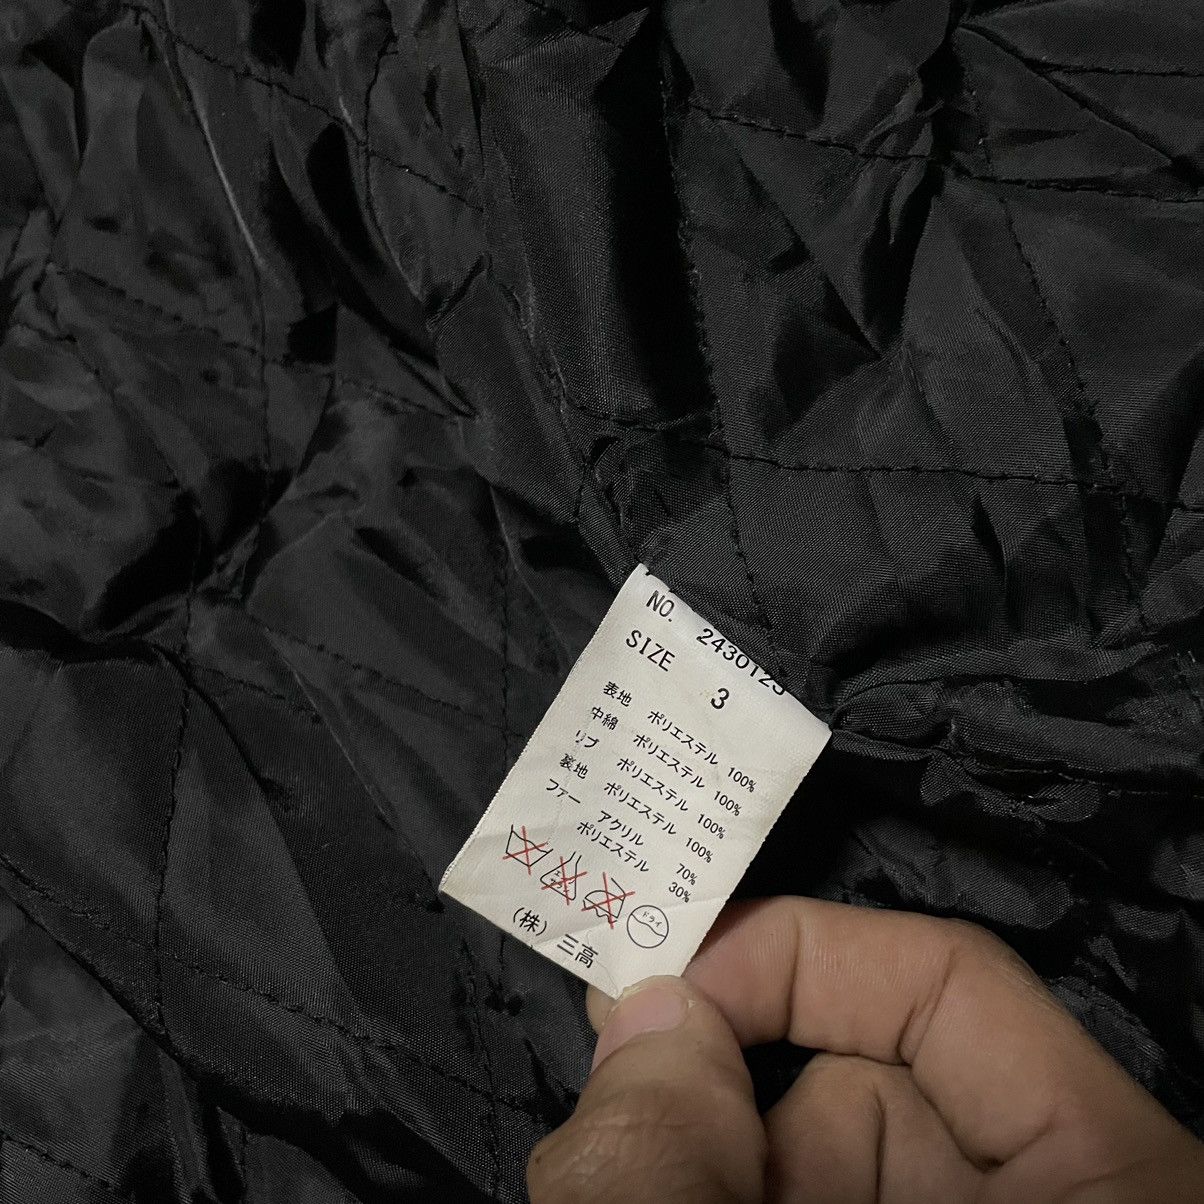 NO. 2430123
SIZE 3
表地 ポリエステル 100%
中綿 ポリエステル 100%
リブ ポリエステル 100%
裏地 ポリエステル 100%
ファー アクリル 70%
ポリエステル 30%
エンソ
サラシ
ドライ
(株) 三高